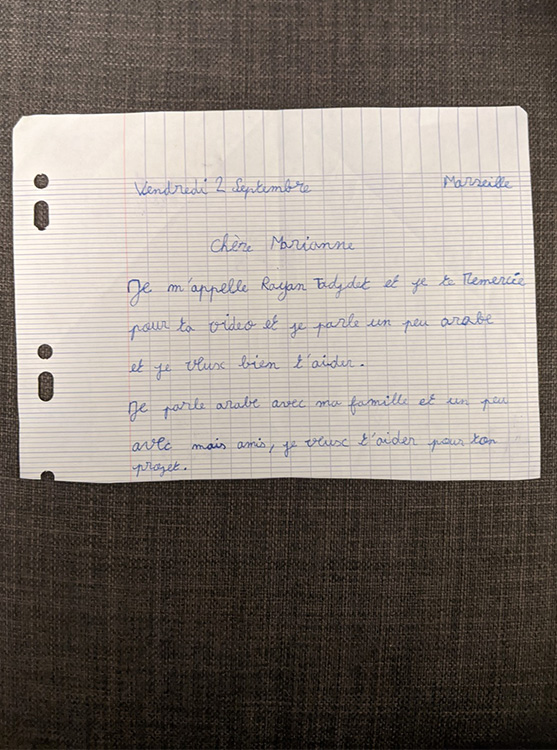 Vendredi 2 Septembre Marseille
Chère Marianne
Je m'appelle Rayan Tadjdet et je te Remercie
pour ta video et je parle un peu arabe
et je veux bien t'aider.
Je parle arabe avec ma famille et un peu
avec mais amis, je veux t'aider pour ton
projet.